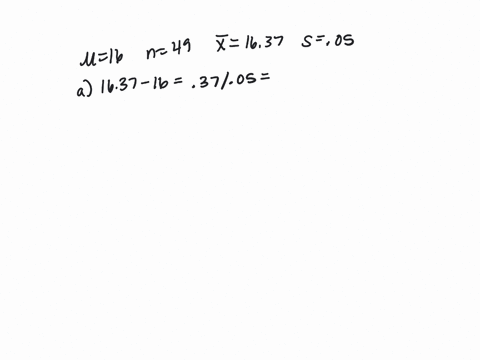 μ=16 n=49 x̄=16.37 s=.05
a) 16.37-16= .37/.05=